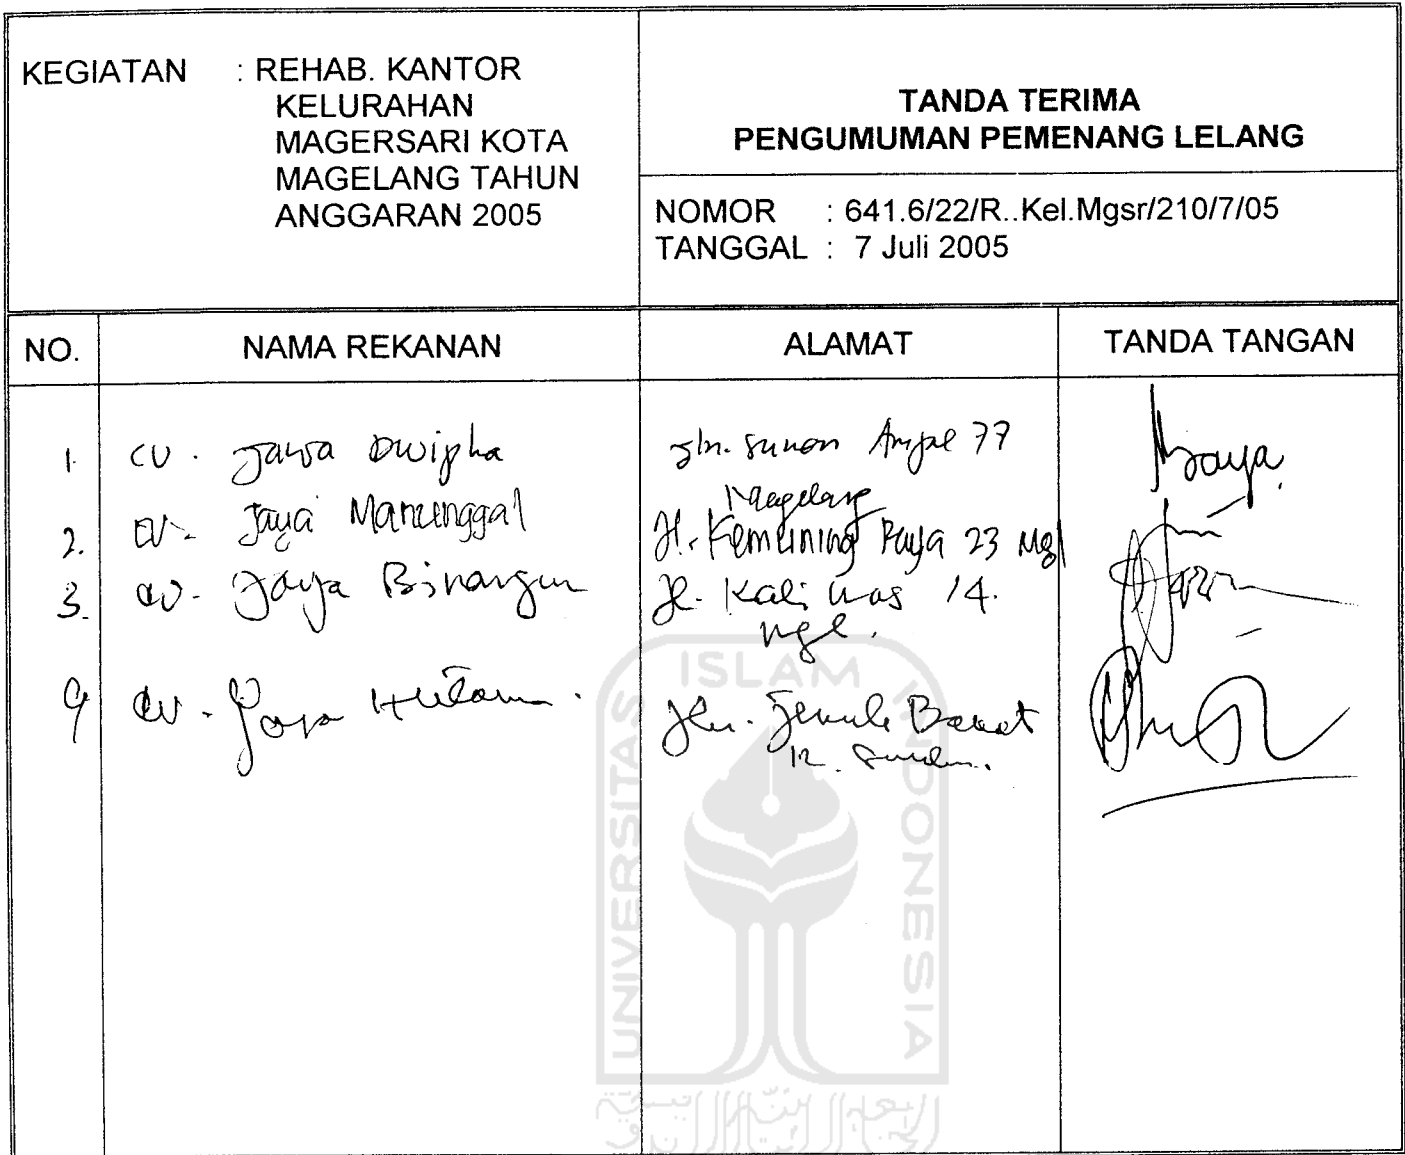 KEGIATAN : REHAB. KANTOR
KELURAHAN
MAGERSARI KOTA
MAGELANG TAHUN
ANGGARAN 2005
TANDA TERIMA
PENGUMUMAN PEMENANG LELANG
NOMOR : 641.6/22/R..Kel.Mgsr/210/7/05
TANGGAL : 7 Juli 2005
NO. NAMA REKANAN ALAMAT TANDA TANGAN
1. CV. Jawa Dwipha Jln. Sunan Ampel 77
Magelang
2. CV. Jaya Manunggal Jl. Kemuning Raya 23 Mgl
3. CV. Jaya Binangun Jl. Kali 14.
Mgl.
4 CV. Jaya Hutama. Jln. Barat
12.
UNIVERSITAS ISLAM INDONESIA